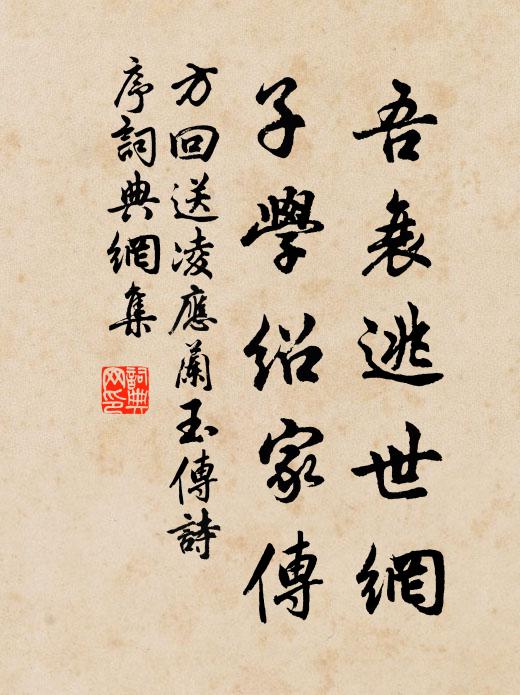 吾衰逃世網
子學紹家傳
方回送凌應蘭玉傳詩
序詞典網集
詞典網印